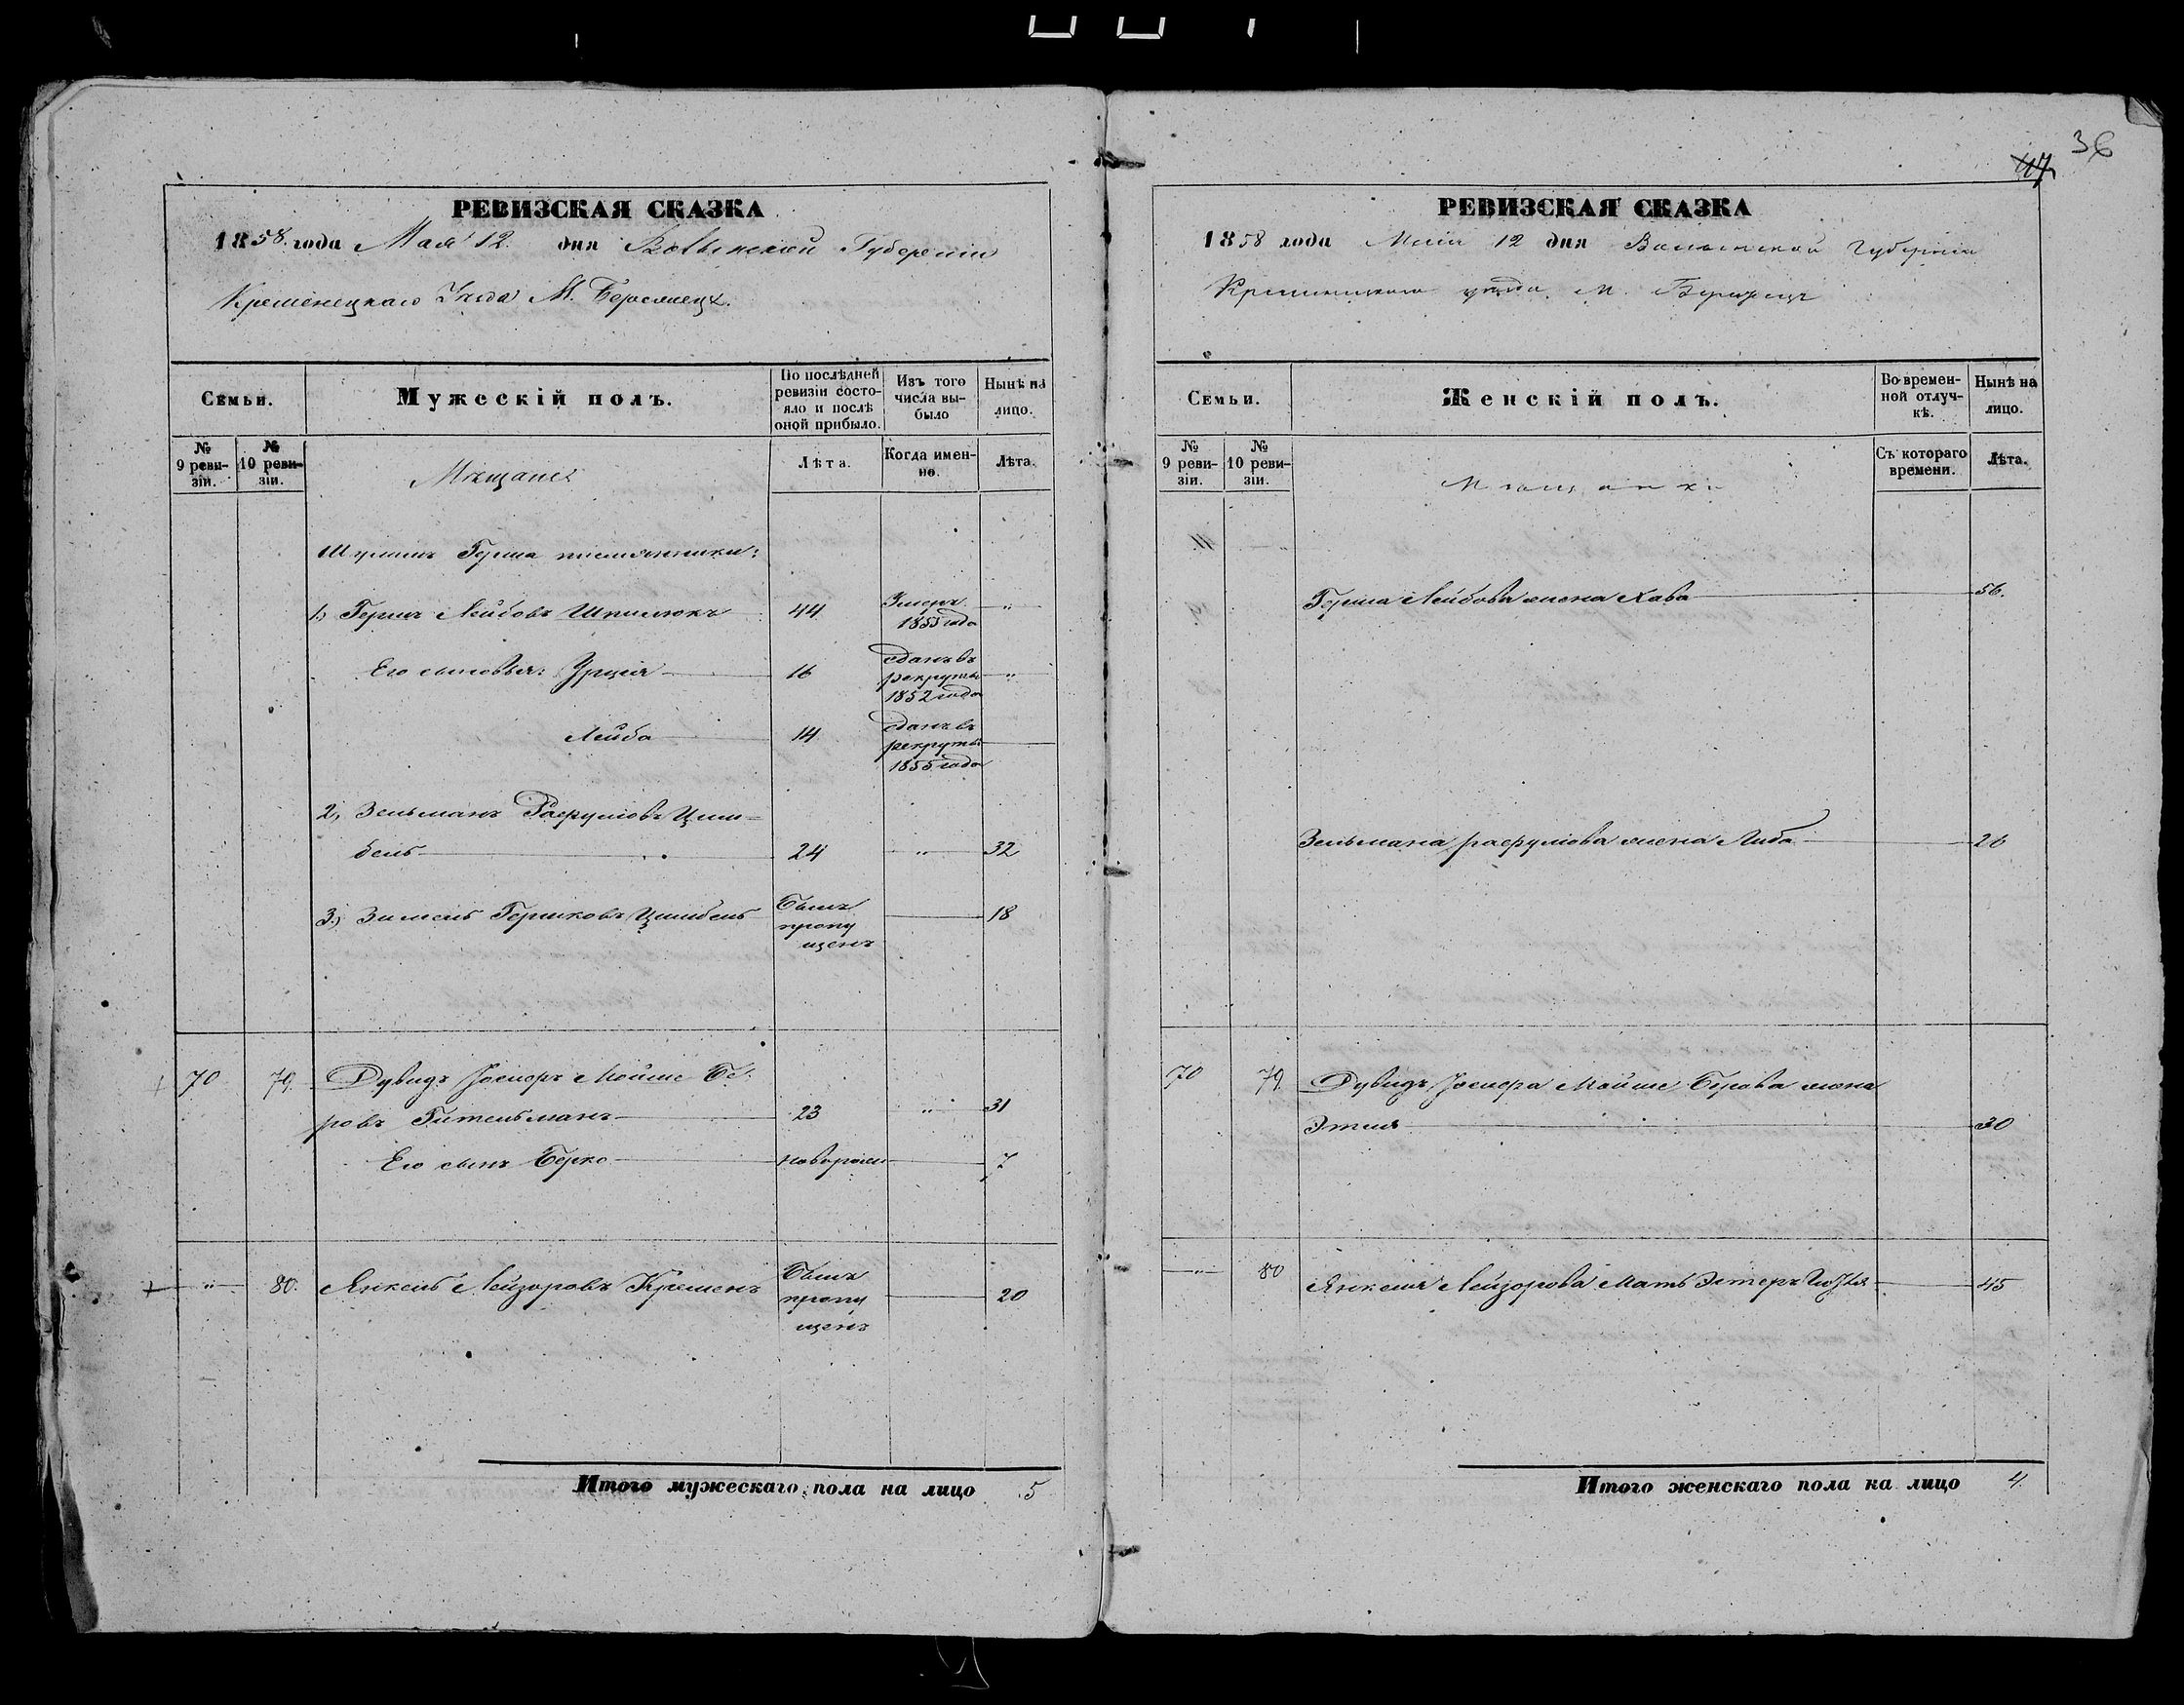 36
47
РЕВИЗСКАЯ СКАЗКА
1858 года Мая 12 дня Волынской Губерніи
Кременецкаго Уезда М. Бережецъ
Семьи.
Мужескій полъ.
По послѣдней ревизіи состояло и послѣ оной прибыло.
Изъ того числа выбыло
Нынѣ на лицо.
№ 9 ревизіи.
№ 10 ревизіи.
Мѣщане
Лѣта.
Когда именно.
Лѣта.
Герша племянники:
1) Гершъ Лейбовъ 44 Умеръ 1855 года "
Его сыновья: 16 сданъ въ рекруты 1852 года "
Лейба 14 сданъ въ рекруты 1855 года
2) Зельманъ Цим=
бель 24 " 32
3) Гершковъ Цимбель Былъ пропущенъ 18
70 79. Дувидъ Мойше Бе-
ровъ Гительманъ 23 " 31
Его сынъ Берко новорожд 7
" 80. Янкель Лейзоровъ Кременъ Былъ пропущенъ 20
Итого мужескаго пола на лицо 5
РЕВИЗСКАЯ СКАЗКА
1858 года Мая 12 дня Волынской Губерніи
Кременецкаго уезда М. Бережецъ
Семьи.
Женскій полъ.
Во временной отлучкѣ.
Нынѣ на лицо.
№ 9 ревизіи.
№ 10 ревизіи.
Мѣщанки
Съ котораго времени.
Лѣта.
Герша Лейбова жена Хава 56.
Зельмана жена Либа 26
70 79. Дувидъ Мойше Берова жена
Этля 30
" 80 Янкеля Лейзорова мать Эстеръ 45
Итого женскаго пола на лицо 4.